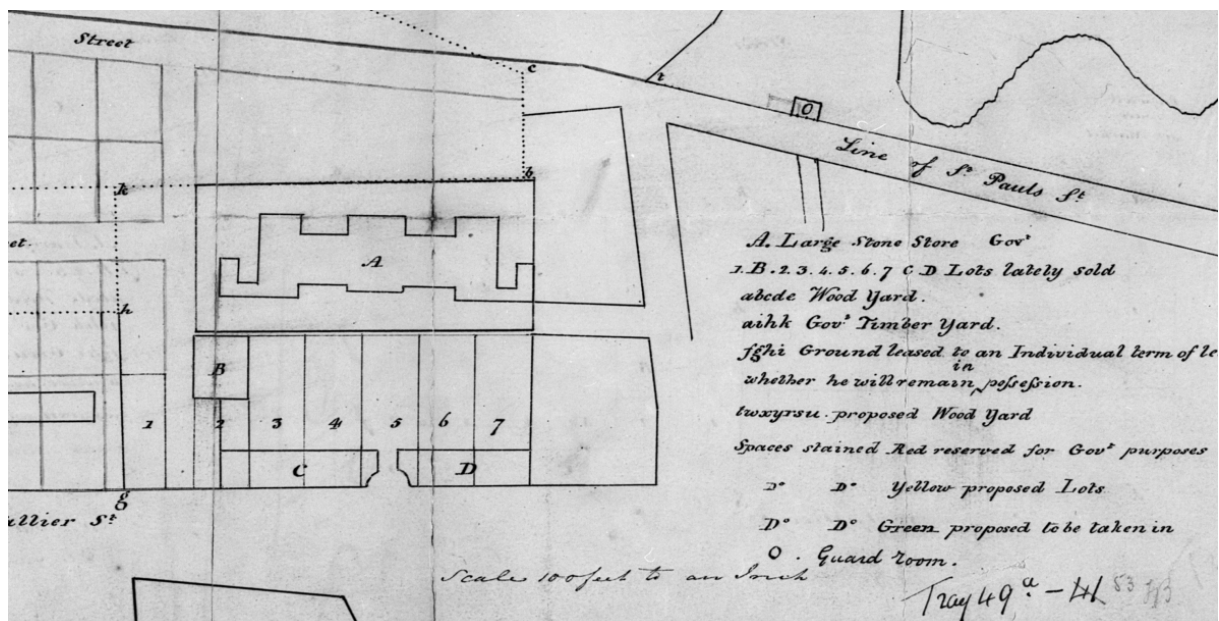 Street
c
t
O
Line of St Pauls St
k
b
A
A. Large Stone Store Govt
1. B. 2. 3. 4. 5. 6. 7 C D Lots lately sold
abcde Wood Yard.
aihk Govt Timber Yard.
h
fghi Ground leased to an Individual term of le
in
whether he will remain possession.
B
1 2 3 4 5 6 7
twxyrsu. proposed Wood Yard
C D
Spaces stained Red reserved for Govt purposes
g
Do Do Yellow proposed Lots
ullier St
Do Do Green proposed to be taken in
O. Guard room.
Scale 100 feet to an Inch
Tray 49 a - 41